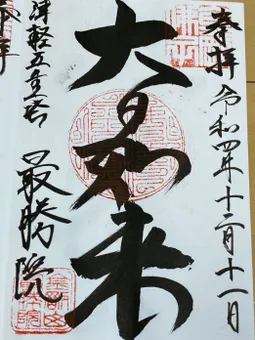 奉拝 令和四年十二月十一日
大日如来
津軽五重塔
最勝院